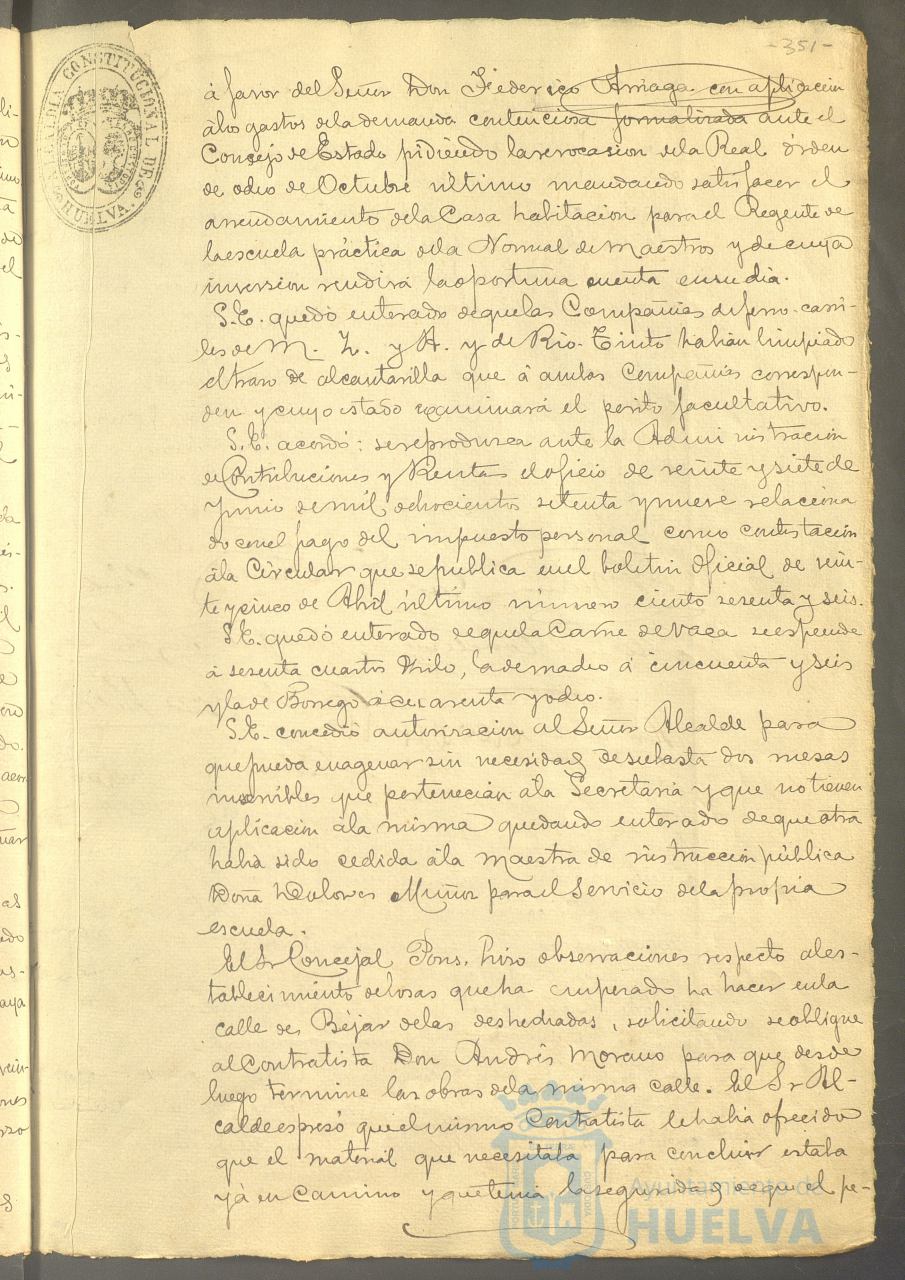 -351-
ALCALDIA CONSTITUCIONAL DE HUELVA
á favor del Señor Don Federico Arriaga con aplicacion
á los gastos de la demanda contenciosa formalizada ante el
Consejo de Estado pidiendo la revocasion de la Real órden
de ocho de Octubre último mandando satisfacer el
arrendamiento de la Casa habitacion para el Regente de
la escuela práctica de la Normal de Maestros y de cuya
inversion rendirá la oportuna cuenta en su dia.
S.E. quedó enterado de que las Compañias de ferro-carri-
les de M. Z. y A. y de Rio-Tinto habian limpiado
el trazo de alcantarilla que á ambas Compañias correspon-
den y cuyo estado examinará el perito facultativo.
S.E. acordó: se reproduzca ante la Administracion
de Contribuciones y Rentas el oficio de veinte y siete de
Junio de mil ochocientos setenta y nueve relaciona
do con el pago del impuesto personal como contestacion
á la Circular que se publica en el boletin Oficial de vein-
te y cinco de Abril último número ciento sesenta y seis.
S.E. quedó enterado de que la Carne de Vaca se espende
á sesenta cuartos Kilo, la de macho á cincuenta y seis
y la de Borrego á cuarenta y ocho.
S.E. concedió autorizacion al Señor Alcalde para
que pueda enagenar sin necesidad de subasta dos mesas
inservibles que pertenecian á la Secretaria y que no tienen
aplicacion á la misma quedando enterado de que otra
habia sido cedida á la maestra de instruccion pública
Doña Dolores Muñoz para el Servicio de la propia
escuela.
El Sr Concejal Pons, hizo observaciones respecto al es-
tablecimiento de losas que ha empezado ha hacer en la
calle de Béjar de las deshechadas, solicitando se obligue
al Contratista Don Andrés Morano para que desde
luego termine las obras de la misma calle. El Sr Al-
calde espresó que el mismo Contratista le habia ofrecido
que el material que necesitaba para concluir estaba
yá en Camino y que tenia la seguridad de que el pe-
Ayuntamiento de
HUELVA